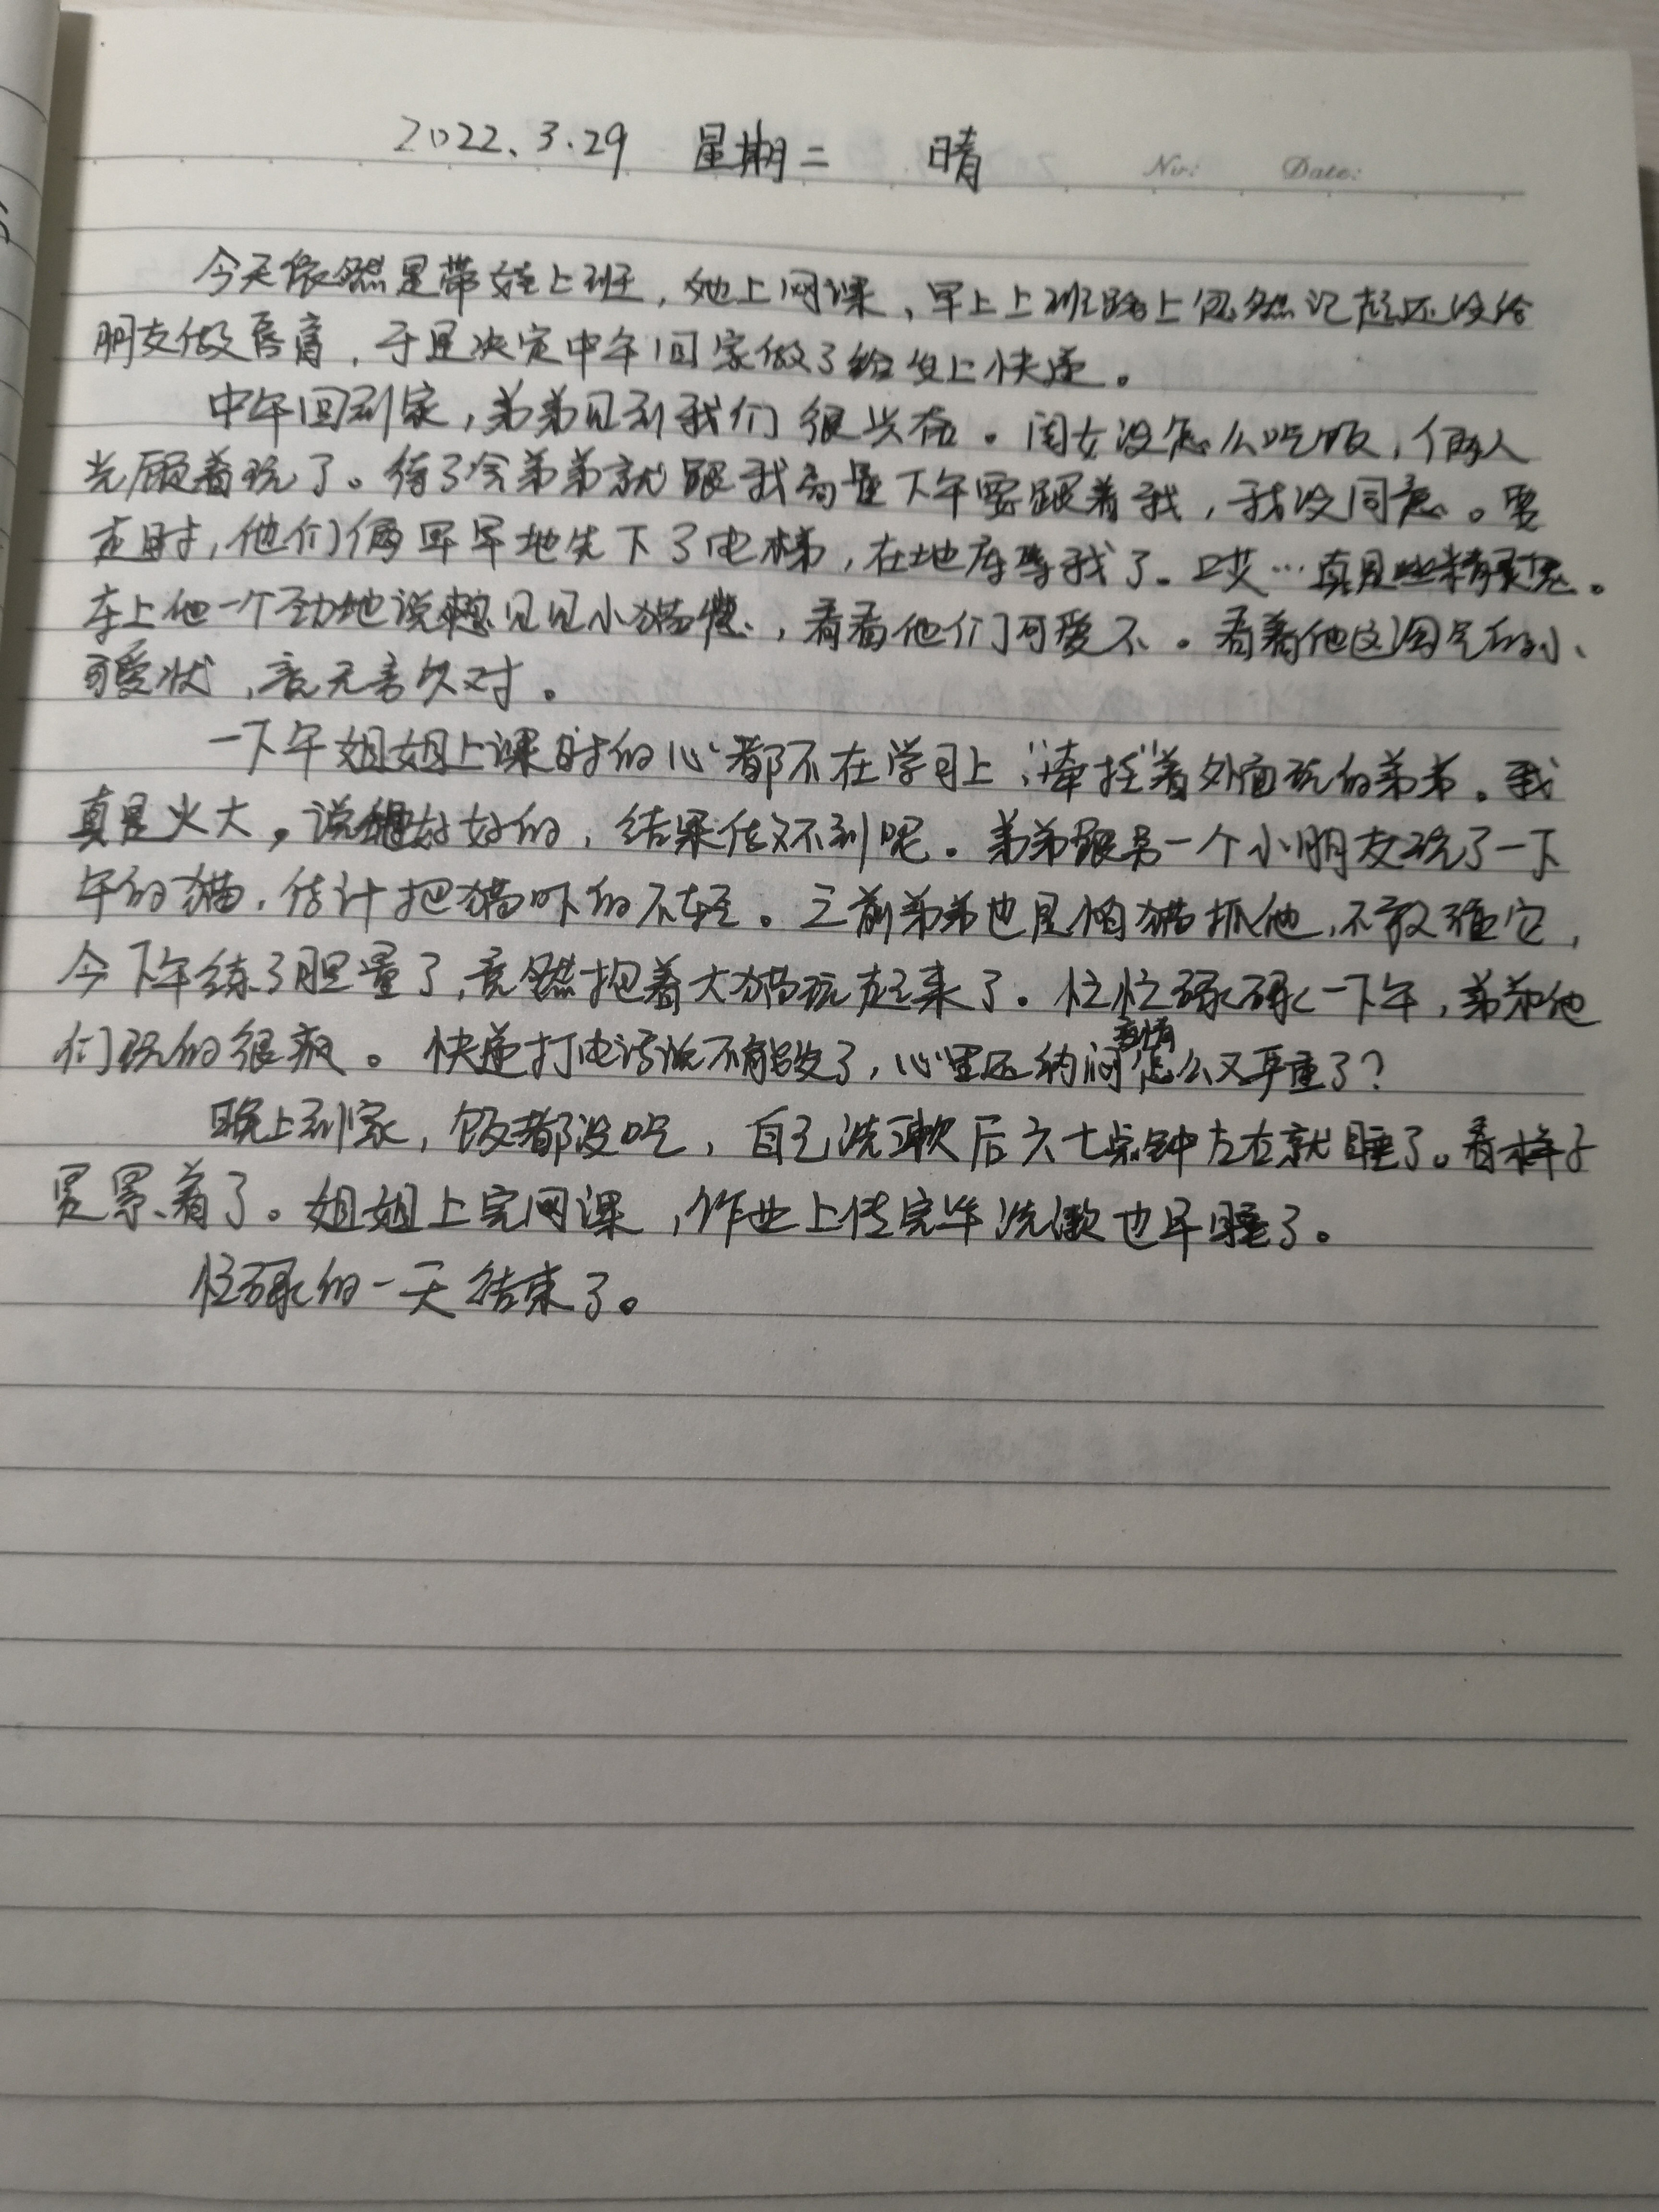 2022.3.29 星期二 晴
No: Date:
今天依然是带娃上班，她上网课，早上上班路上忽然记起还没给
朋友做唇膏，于是决定中午回家做了给发上快递。
中午回到家，弟弟见到我们很兴奋。闺女没怎么吃饭，俩人
光顾着玩了。待了会弟弟就跟我商量下午要跟着我，我没同意。要
走时，他们俩早早地先下了电梯，在地库等我了。哎…真是些精灵鬼。
车上他一个劲地说想见见小猫咪，看看他们可爱不。看着他这淘气的小
可爱状，竟无言久对。
一下午姐姐上课时的心都不在学习上，“牵挂”着外面玩的弟弟。我
真是火大，说好好的，结果信效不到呢。弟弟跟另一个小朋友玩了一下
午的猫，估计把猫吓的不轻。之前弟弟也是怕猫抓他，不敢碰它，
今下午练了胆量了，竟然抱着大猫玩起来了。忙忙碌碌一下午，弟弟他
们玩的很疯。快递打电话说不能发了，心里还纳闷疫情怎么又严重了？
晚上到家，饭都没吃，自己洗漱后六七点钟左右就睡了。看样子
是累着了。姐姐上完网课，作业上传完毕洗漱也早睡了。
忙碌的一天结束了。